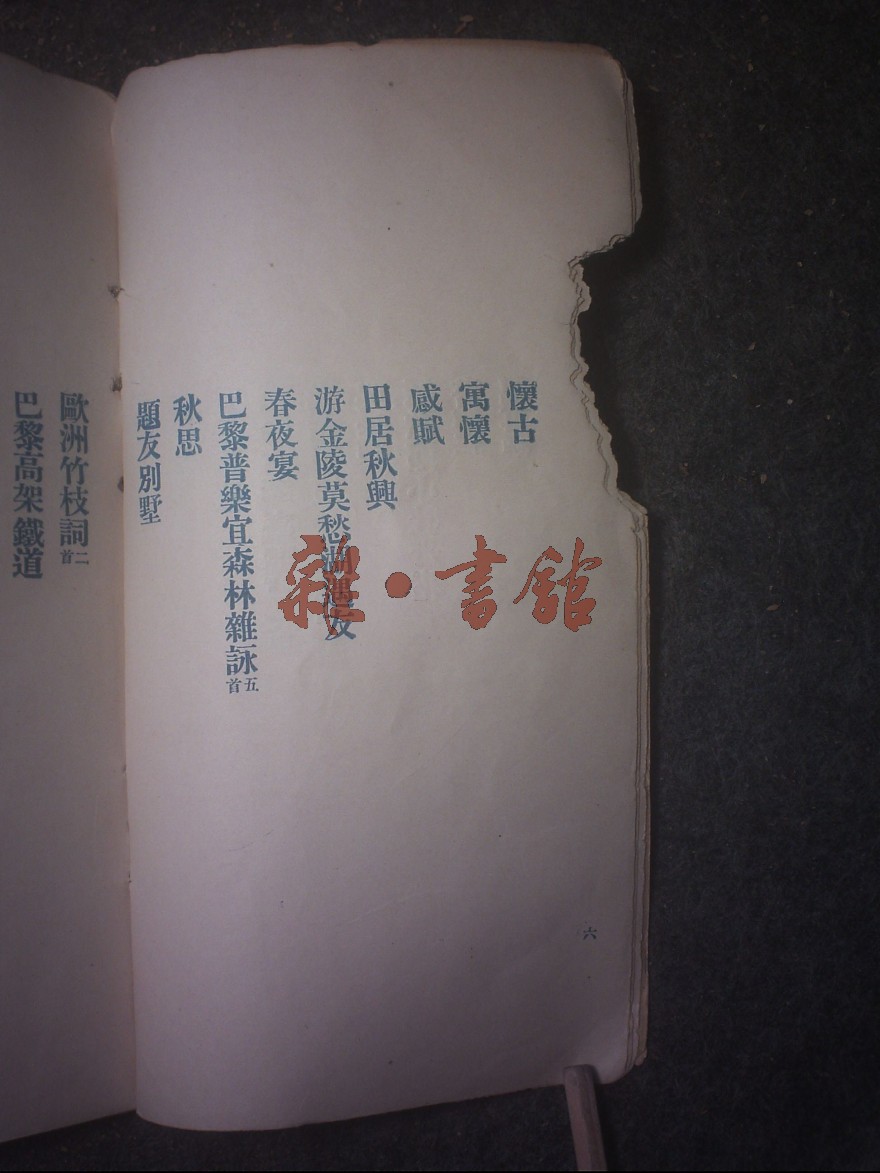 懷古
寓懷
感賦
田居秋興
游金陵莫愁湖遇友
春夜宴
巴黎普樂宜森林雜詠五首
秋思
題友別墅
六
歐洲竹枝詞二首
巴黎高架鐵道
雜·書館